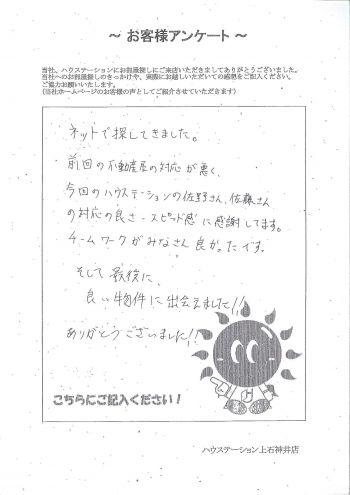 ～ お客様アンケート ～
当社、ハウステーションにお部屋探しにご来店いただきましてありがとうございました。
当社へのお部屋探しのきっかけや、実際にお越しいただいての感想をご記入ください。
ご協力お願いいたします。
(当社ホームページのお客様の声としてご紹介させていただきます)
ネットで探してきました。
前回の不動産屋の対応が悪く、
今回のハウステーションの佐野さん、佐藤さん
の対応の良さ・スピード感に感謝してます。
チームワークがみなさん良かったです。
そして最後に、
良い物件に出会えました!!
ありがとうございました!!
こちらにご記入ください!
ハウステーション上石神井店